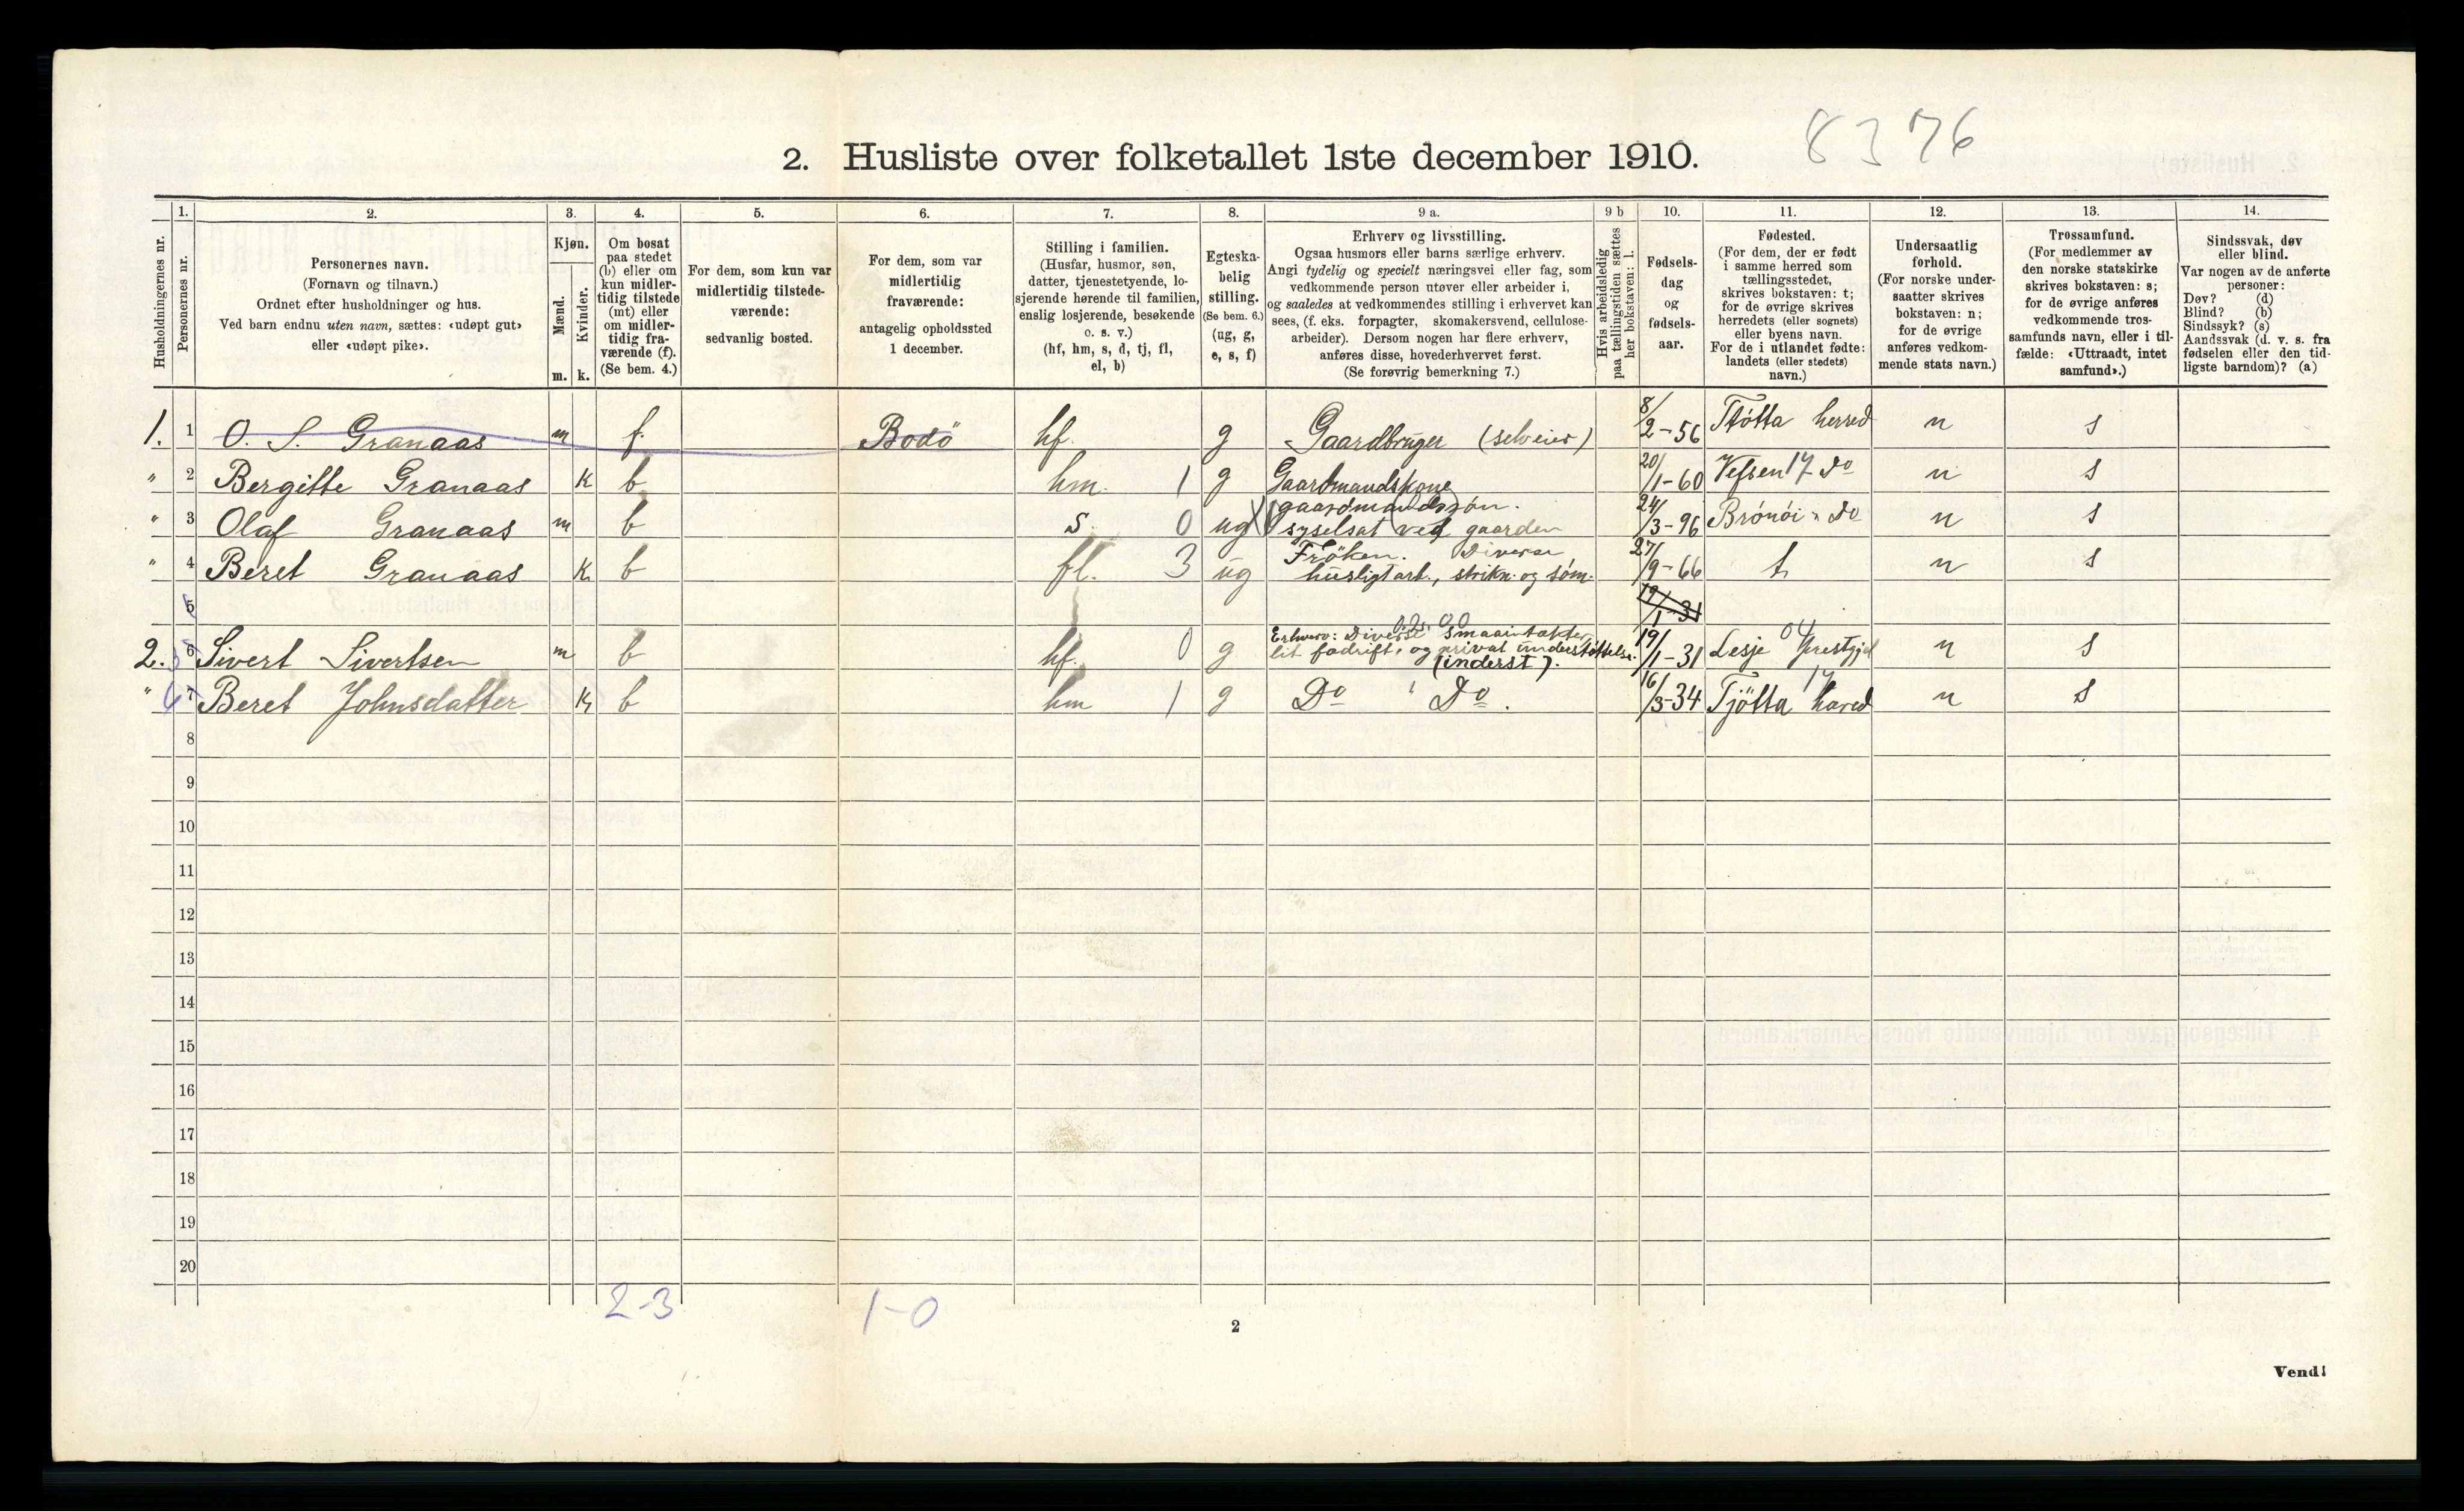 8376
2. Husliste over folketallet 1ste december 1910.
Husholdningernes nr.
1.
Personernes nr.
2.
Personernes navn.
(Fornavn og tilnavn.)
Ordnet efter husholdninger og hus.
Ved barn endnu uten navn, sættes: «udøpt gut»
eller «udøpt pike».
3.
Kjøn.
Mænd.
Kvinder.
m. k.
4.
Om bosat
paa stedet
(b) eller om
kun midler-
tidig tilstede
(mt) eller
om midler-
tidig fra-
værende (f).
(Se bem. 4.)
5.
For dem, som kun var
midlertidig tilstede-
værende:
sedvanlig bosted.
6.
For dem, som var
midlertidig
fraværende:
antagelig opholdssted
1 december.
7.
Stilling i familien.
(Husfar, husmor, søn,
datter, tjenestetyende, lo-
sjerende hørende til familien,
enslig losjerende, besøkende
o. s. v.)
(hf, hm, s, d, tj, fl,
el, b)
8.
Egteska-
belig
stilling.
(Se bem. 6.)
(ug, g,
e, s, f)
9 a.
Erhverv og livsstilling.
Ogsaa husmors eller barns særlige erhverv.
Angi tydelig og specielt næringsvei eller fag, som
vedkommende person utøver eller arbeider i,
og saaledes at vedkommendes stilling i erhvervet kan
sees, (f. eks. forpagter, skomakersvend, cellulose-
arbeider). Dersom nogen har flere erhverv,
anføres disse, hovederhvervet først.
(Se forøvrig bemerkning 7.)
9 b
Hvis arbeidsledig
paa tællingstiden sættes
her bokstaven: l.
10.
Fødsels-
dag
og
fødsels-
aar.
11.
Fødested.
(For dem, der er født
i samme herred som
tællingsstedet,
skrives bokstaven: t;
for de øvrige skrives
herredets (eller sognets)
eller byens navn.
For de i utlandet fødte:
landets (eller stedets)
navn.)
12.
Undersaatlig
forhold.
(For norske under-
saatter skrives
bokstaven: n;
for de øvrige
anføres vedkom-
mende stats navn.)
13.
Trossamfund.
(For medlemmer av
den norske statskirke
skrives bokstaven: s;
for de øvrige anføres
vedkommende tros-
samfunds navn, eller i til-
fælde: «Uttraadt, intet
samfund».)
14.
Sindssvak, døv
eller blind.
Var nogen av de anførte
personer:
Døv? (d)
Blind? (b)
Sindssyk? (s)
Aandssvak (d. v. s. fra
fødselen eller den tid-
ligste barndom)? (a)
1. 1 O. S. Granaas m f. Bodö hf. g Gaardbruger (selveier) 8/2-56 Tjötta herred n s
" 2 Bergitte Granaas K b hm. 1 g Gaardmandskone 20/1-60 Vefsen 17 Do n s
" 3 Olaf Granaas m b s. 0 ug gaardmandssøn.
syselsat ved gaarden 24/3-96 Brönöi " Do n s
" 4 Beret Granaas K b fl. 3 ug Fröken. Diverse
husligt arb., strikn. og söm. 27/9-66 t n s
5 19/1-31
2. 6 5 Sivert Sivertsen m b hf. 0 g Erhverv: Diverse smaaintækter,
lit fædrift, og privat understöttelse.
(inderst). 19/1-31 Lesje 04 Prestgjel n s
" 7 6 Beret Johnsdatter K b hm 1 g Do " Do. 16/3-34 Tjötta 17 hered n s
8
9
10
11
12
13
14
15
16
17
18
19
20
2-3 1-0
2
Vend!